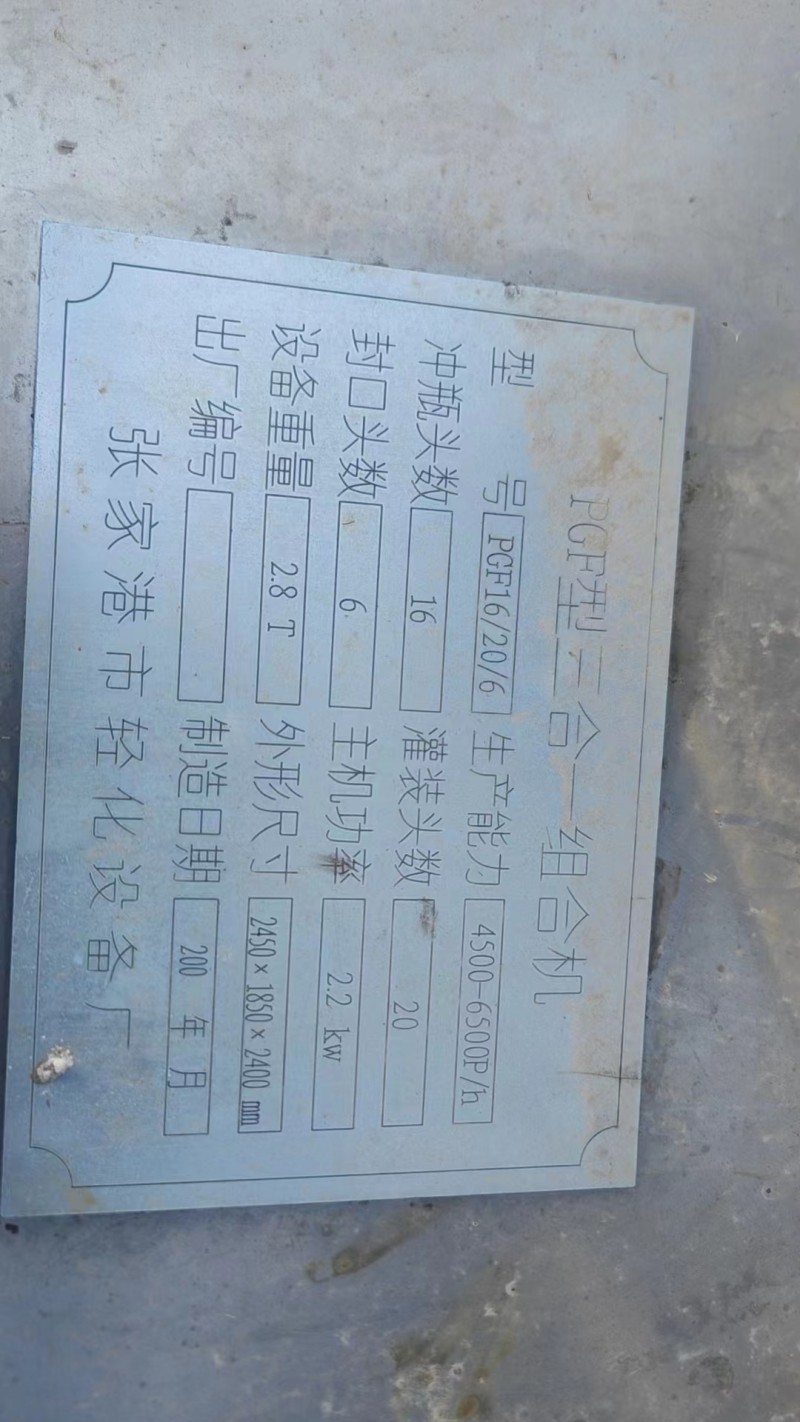 PGF型三合一组合机
型号 PGF16/20/6 生产能力 4500-6500P/h
冲瓶头数 16 灌装头数 20
封口头数 6 主机功率 2.2 kw
设备重量 2.8 T 外形尺寸 2450×1850×2400 mm
出厂编号 制造日期 200 年 月
张家港市轻化设备厂